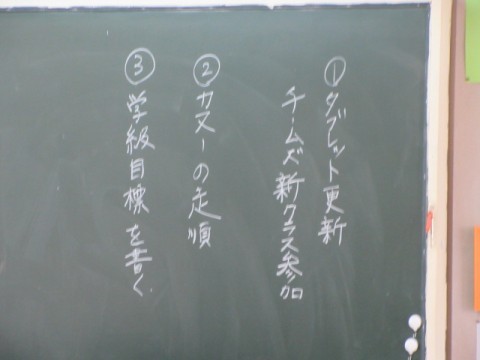 ①タブレット更新
チームズ新クラス参加
②カヌーの走順
③学級目標を書く